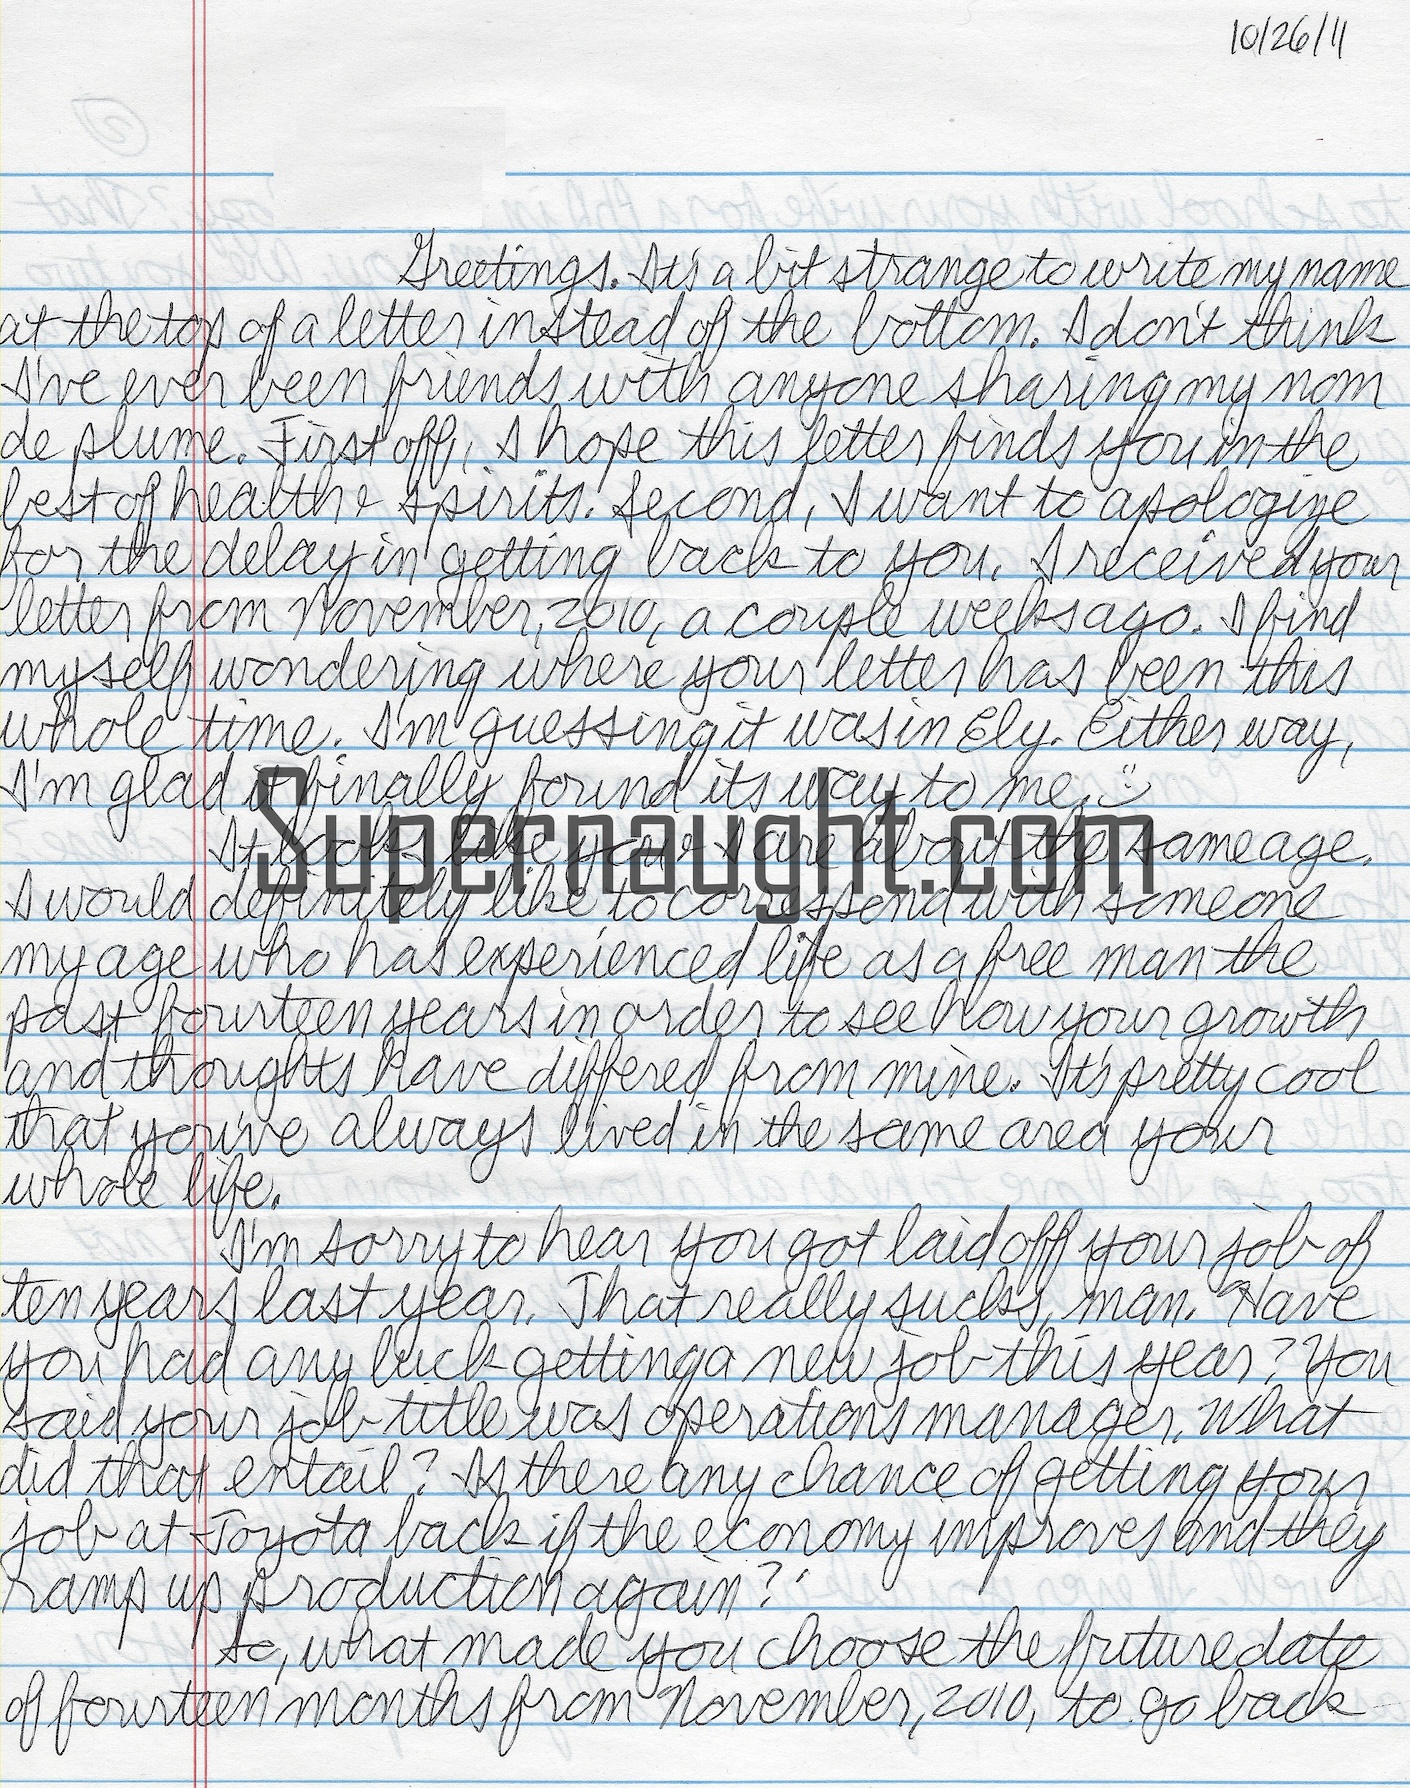 10/26/11
Greetings. It's a bit strange to write my name
at the top of a letter instead of the bottom. I don't think
I've ever been friends with anyone sharing my nom
de plume. First off, I hope this letter finds you in the
best of health & spirits. Second, I want to apologize
for the delay in getting back to you. I received your
letter from November, 2010, a couple weeks ago. I find
myself wondering where your letter has been this
whole time. I'm guessing it was in Ely. Either way,
I'm glad it finally found its way to me. :)
Supernaught.com
It looks like you & I are about the same age.
I would definitely like to correspond with someone
my age who has experienced life as a free man the
past fourteen years in order to see how your growth
and thoughts have differed from mine. It's pretty cool
that you've always lived in the same area your
whole life.
I'm sorry to hear you got laid off your job of
ten years last year. That really sucks, man. Have
you had any luck getting a new job this year? You
said your job title was operations manager. What
did that entail? Is there any chance of getting your
job at Toyota back if the economy improves and they
ramp up production again?
So, what made you choose the future date
of fourteen months from November, 2010, to go back